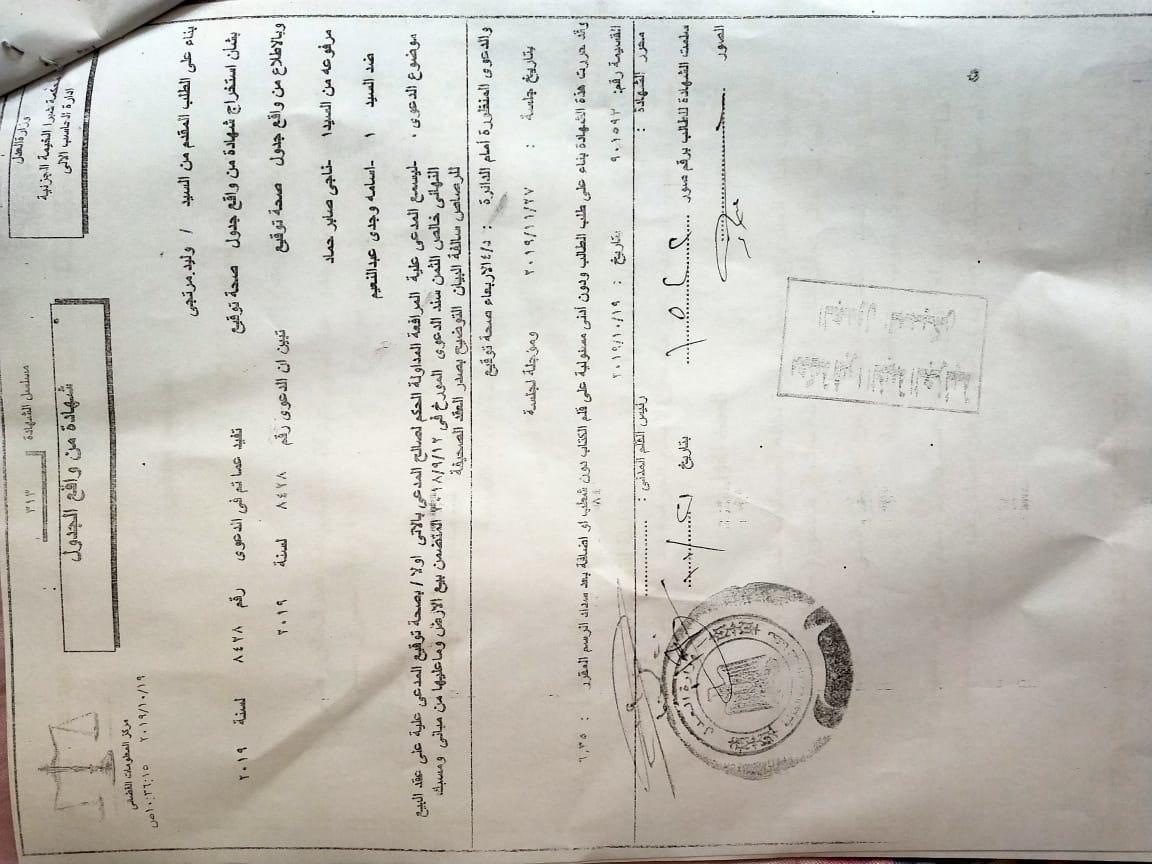 وزارة العدل
محكمة شبرا الخيمة الجزئية
ادارة الحاسب الالى
مسلسل الشهادة ٣١٣
شهادة من واقع الجدول
مركز المعلومات القضائى
٢٠١٩/١٠/١٩ ١٠:٣٦:١٥ص
بناء على الطلب المقدم من السيد / وليد مرتجى
بشان استخراج شهادة من واقع جدول صحة توقيع تفيد عما تم فى الدعوى رقم ٨٤٢٨ لسنة ٢٠١٩
وبالاطلاع من واقع جدول صحة توقيع تبين ان الدعوى رقم ٨٤٢٨ لسنة ٢٠١٩
مرفوعه من السيد ١ -ناجى صابر حماد
ضد السيد ١ -اسامه وجدى عبدالنعيم
موضوع الدعوى . -ليسمع المدعى علية المرافعة المداولة الحكم لصالح المدعى بالاتى اولا / بصحة توقيع المدعى علية على عقد البيع
النهائى خالص الثمن سند الدعوى المورخ فى ٢٠١٨/٩/١٢ المتضمن بيع الارض وماعليها من مبانى ومسبك
للرصاص سالفة البيان التوضيح بصدر العقد الصحيفة
والدعوى المنظورة أمام الدائرة : د/٤ الاربعاء صحة توقيع
بتاريخ جلسة : ٢٠١٩/١١/٢٧ ومؤجلة لجلسة
وقد حررت هذة الشهادة بناء على طلب الطالب ودون أدنى مسئولية على قلم الكتاب دون شطب او اضافة بعد سداد الرسم المقرر : ٦.٣٥
القسيمة رقم: ٩٠١٥٩٢ بتاريخ : ٢٠١٩/١٠/١٩
محرر الشهادة : رئيس القلم المدنى :
سلمت الشهادة للطالب برقم صور بتاريخ
الصور
وزارة العدل